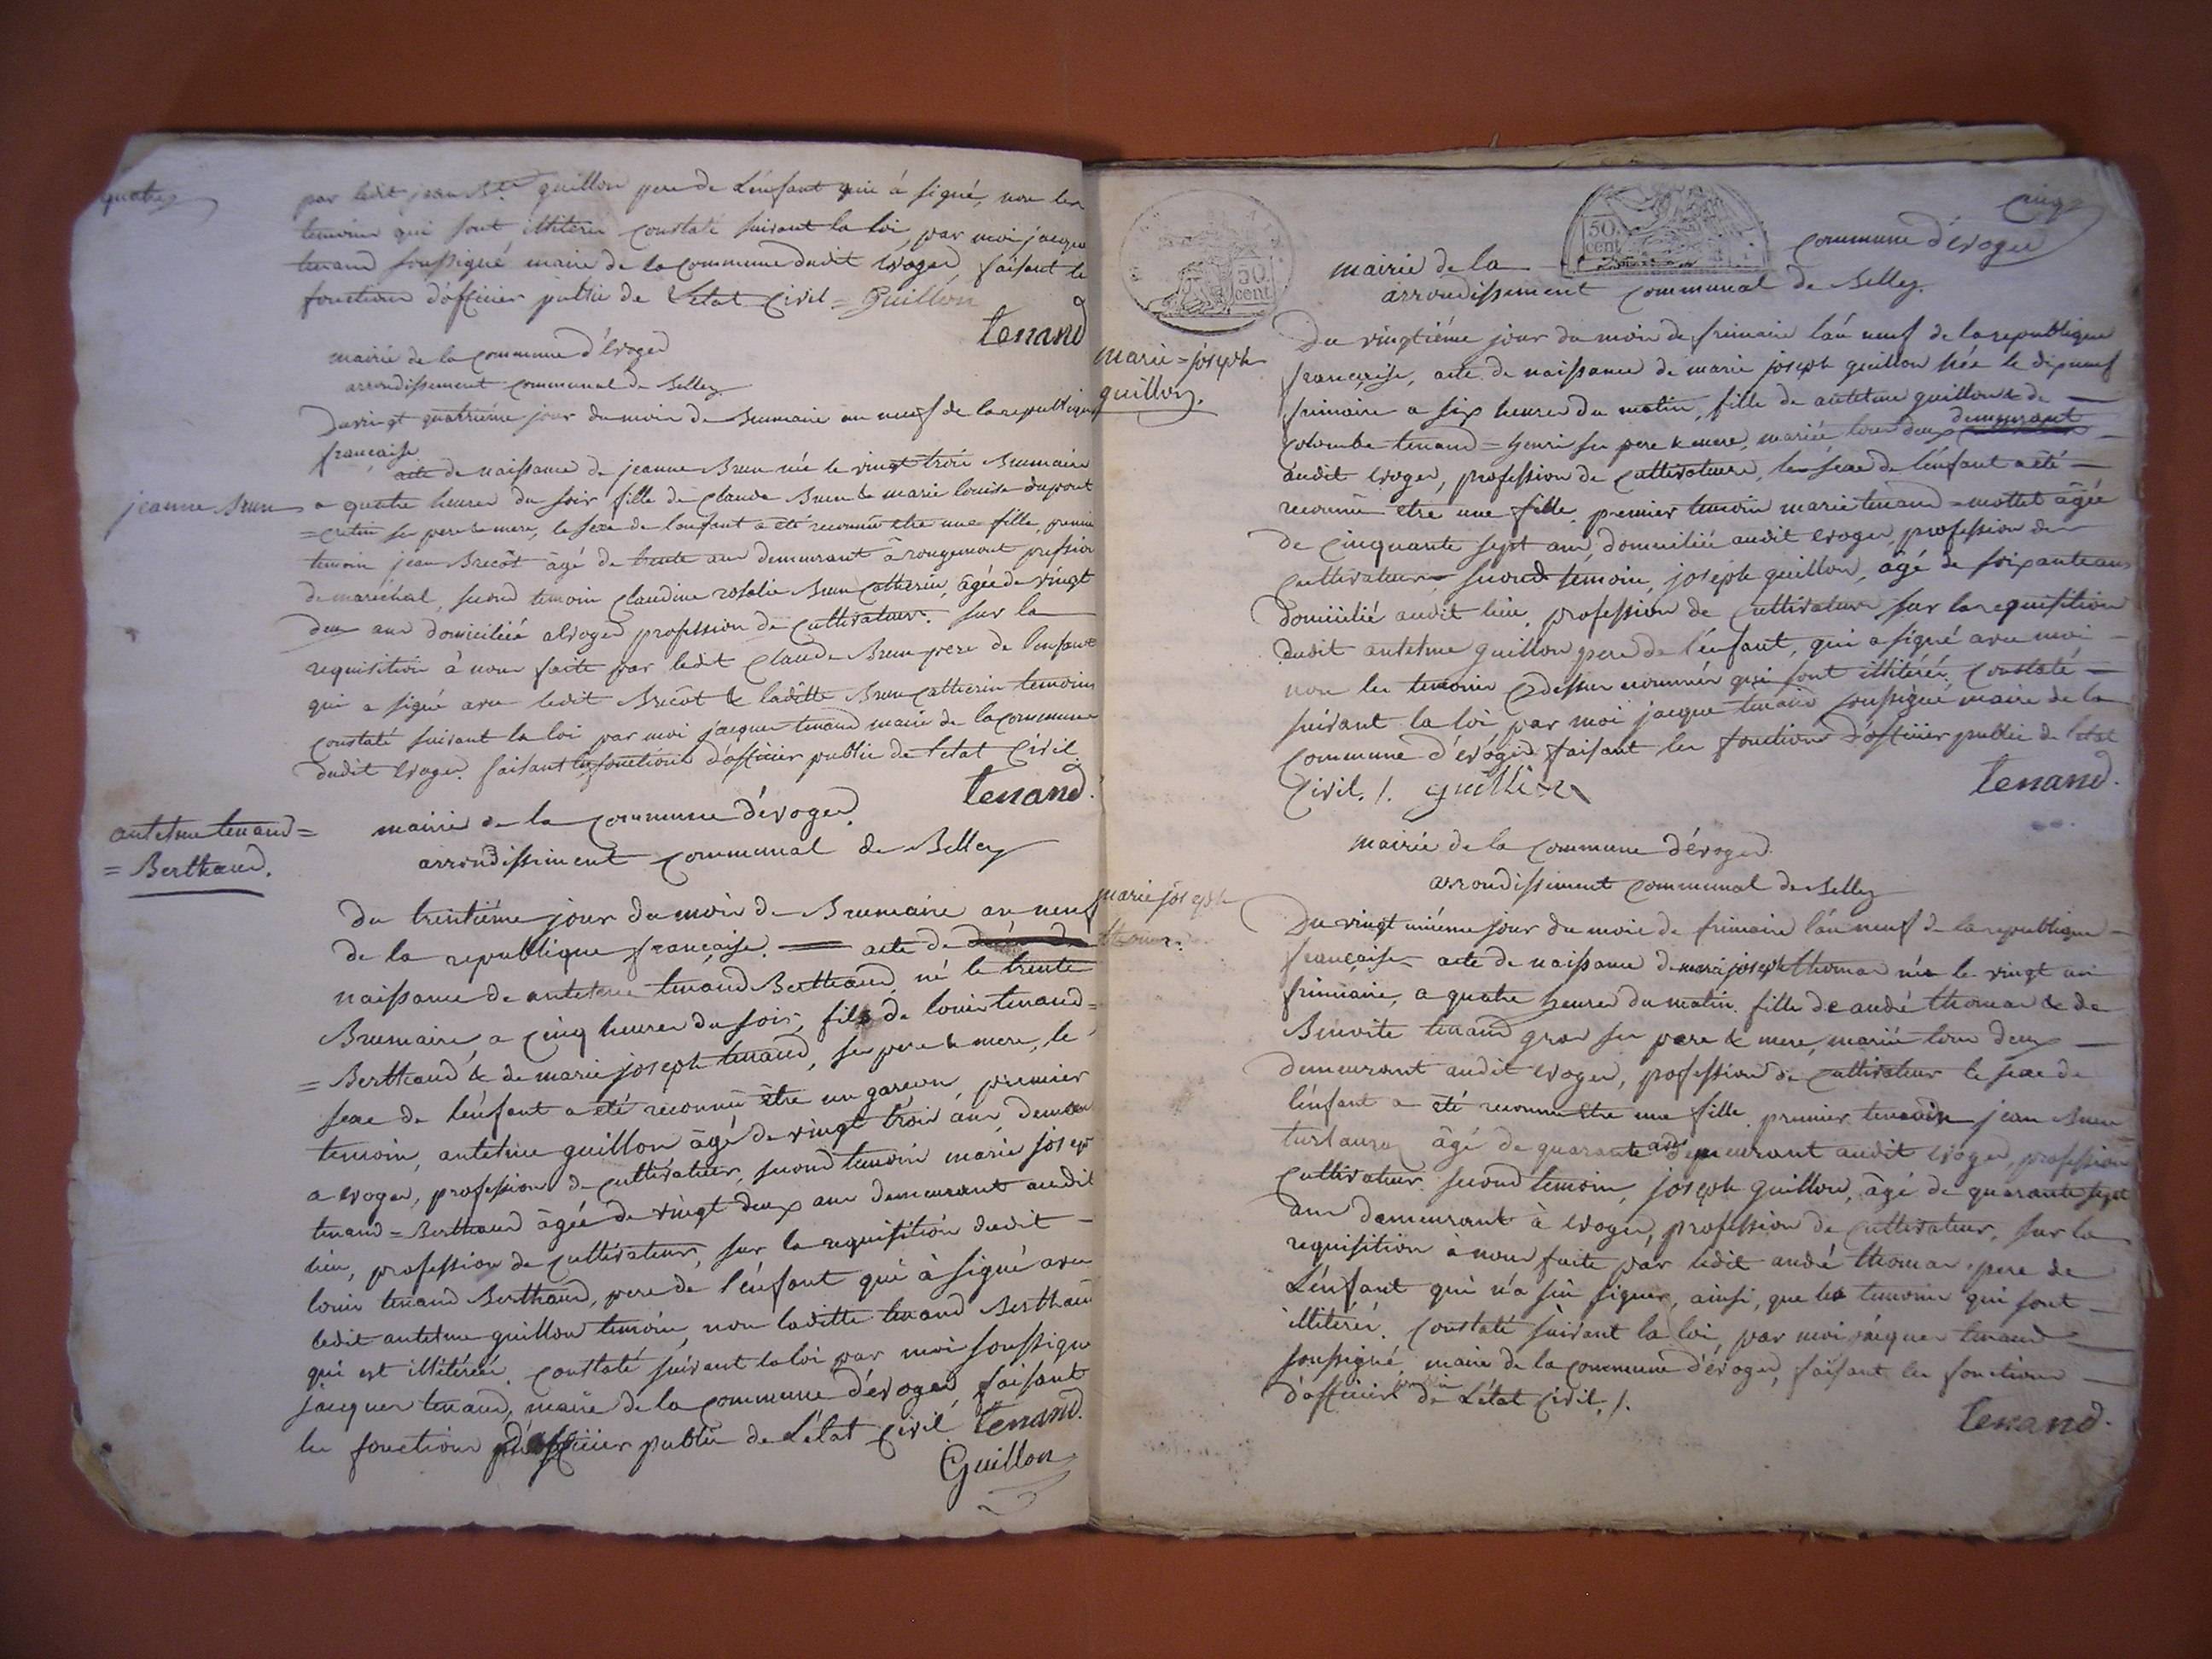 quatre
par ledit jean Bte guillon pere de L'enfant qui á signé, non les
temoins qui sont illiterés constaté suivant la loi, par moi jacque
tenand soussigné maire de la commune dudit evoges, faisant les
fonctions d'officier public de L'etat Civil = Guillon
tenand
mairie de la commune d'évoges
arrondissement communal de Belley
Du vingt quatriéme jour du mois de Brumaire an neuf de la republique
française
jeanne Brun
acte de naissance de jeanne Brun née le vingt trois Brumaire
a quatre heures du soir fille de Claude Brun & marie louise dupont
= cretin ses pere & mere, le sexe de lenfant a été reconnû etre une fille, premier
temoin jean Brecôt âgé de trente ans demeurant â rougemont profession
de maréchal, second temoin Claudine rosalie Brun Catherin, âgée de vingt
deux ans domiciliée a Evoges profession de cultivateur. Sur la
requisition à nous faite par ledit Claude Brun pere de lenfant
qui a signé avec ledit Brecôt & laditte Brun Catherin temoins
constaté suivant la loi par moi jacques tenand maire de la commune
dudit Evoges. faisant les fonctions d'officier public de l'etat Civil
tenand.
antelme tenand =
= Berthaud.
mairie de la commune d'évoges.
arrondissement communal de Belley
Du trentiéme jour du mois de Brumaire an neuf
de la republique française. acte de
naissance de antelme tenand Berthaud, né le trente
Brumaire a Cinq heures du soir, fils de louis tenand =
= Berthaud & de marie joseph tenand, ses pere & mere, le
sexe de l'énfant a été reconnu être un garçon premier
temoin, antelme guillon âgé de vingt trois áns, demeu
a evoges, profession de cultivateur, second temoin marie josep
tenand = Berthaud âgée de vingt deux ans demeurant audit
lieu, profession de cultivateur, sur la requisition dudit
louis tenand Berthaud, pere de l'énfant qui à signé avec
ledit antelme guillon temoin, non laditte tenand Berthaud
qui est illitérée. constaté suivant la loi par moi soussigné
jacques tenand, maire de la commune d'évoges, faisant
les fonctions d'officier public de L'état Civil tenand.
Guillon
Cinq
50. cent
50. cent
mairie de la commune d'évoges
arrondissement communal de Belley.
marie = joseph
guillon.
Du vingtiéme jour du mois de frimaire l'án neuf de la republique
française, acte de naissance de marie joseph guillon née le dixneuf
frimaire a six heures du matin, fille de antelme guillon & de
colombe tenand = henri ses pere & mere, mariés tous deux demeurant
audit evoges, profession de cultivateurs, le sexe de l'énfant a été
reconnû etre une fille. premier temoin marie tenand = mottet âgée
de cinquante sept ans, domiciliée audit evoges, profession de
cultivateur, second témoin, joseph guillon, âgé de soixante ans
domicilié audit lieu, profession de cultivateur sur la requisition
dudit antelme guillon pere de l'énfant, qui a signé avec moi
non les temoins cydessus nommés qui sont illitérés. constaté
suivant la loi par moi jacque tenand soussigné maire de la
commune d'évóges faisant les fonctions d'officier public de l'etat
Civil. /. guillon
tenand.
mairie de la commune d'évoges.
arrondissement communal de Belley
marie joseph
thomas.
Du vingt uniéme jour du mois de frimaire l'án neuf de la republique
française acte de naissance de marie joseph thomas née le vingt un
frimaire, a quatre heures du matin. fille de andré thomas & de
Benoite tenand gros ses pere & mere, mariés tous deux
demeurant audit evoges, pofession de cultivateur le sexe de
l'énfant a été reconnu etre une fille. premier temoin jean Brun
âgé de quarante ans demeurant audit evoges, profession
cultivateur second temoin, joseph guillon, âgé de quarante sept
ans demeurant à evoges, profession de cultivateur, sur la
requisition à nous faite pár ledit andré thomas pere de
L'énfant qui n'a sû signer, ainsi, que les temoins qui sont
illitérés. constaté suivant la loi, par moi jacques tenand
soussigné, maire de la commune d'évoges, faisant les fonctions
d'officier public de L'état Civil. /.
tenand.